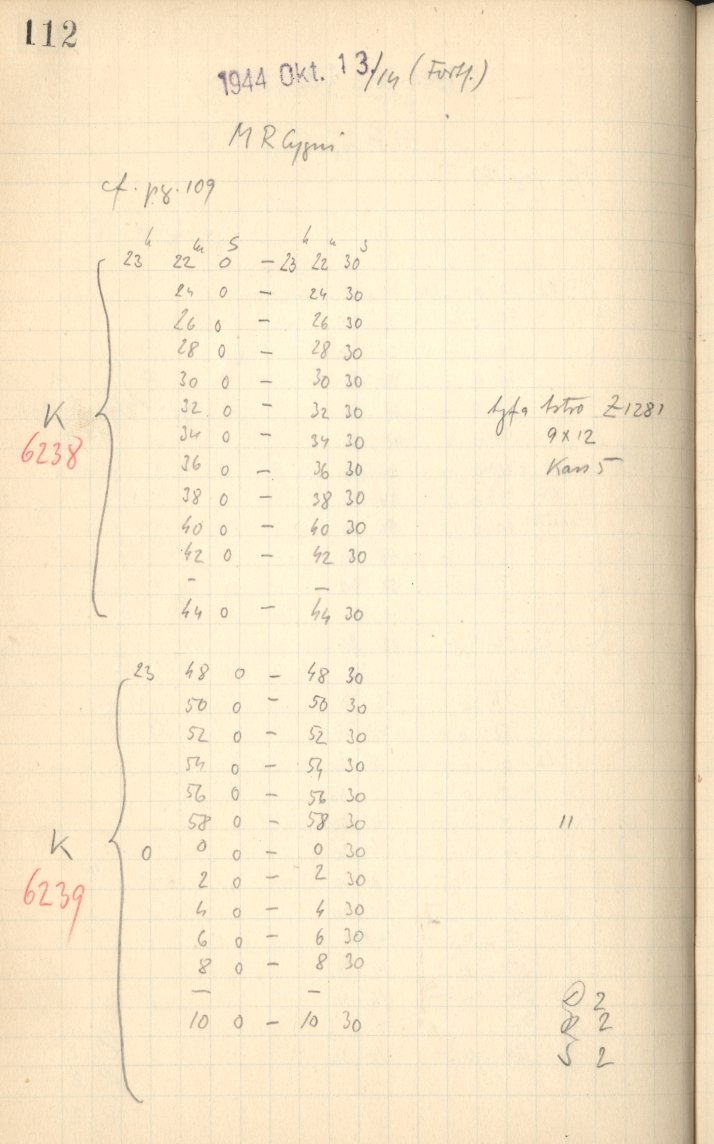 112
1944 Okt. 13./14 (Forts.)
MR Cygni
cf. pg. 109
h m s h m s
23 22 0 - 23 22 30
24 0 - 24 30
26 0 - 26 30
28 0 - 28 30
30 0 - 30 30
K 32 0 - 32 30 Agfa Astro Z1281
6238 34 0 - 34 30 9x12
36 0 - 36 30 Kass 5
38 0 - 38 30
40 0 - 40 30
42 0 - 42 30
- -
44 0 - 44 30
23 48 0 - 48 30
50 0 - 50 30
52 0 - 52 30
54 0 - 54 30
56 0 - 56 30
58 0 - 58 30 "
K 0 0 0 - 0 30
6239 2 0 - 2 30
4 0 - 4 30
6 0 - 6 30
8 0 - 8 30
- -
10 0 - 10 30
2
2
S 2